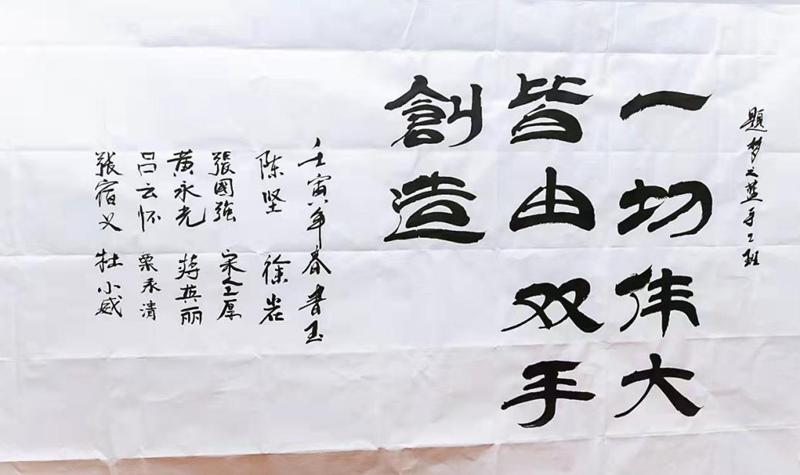 題梦之蓝手工班
一切伟大
皆由双手
創造
壬寅年春書
陈坚 徐岩
張國强 宋全厚
黄永光 蒋英丽
吕云怀 栗永清
张宿义 杜小威